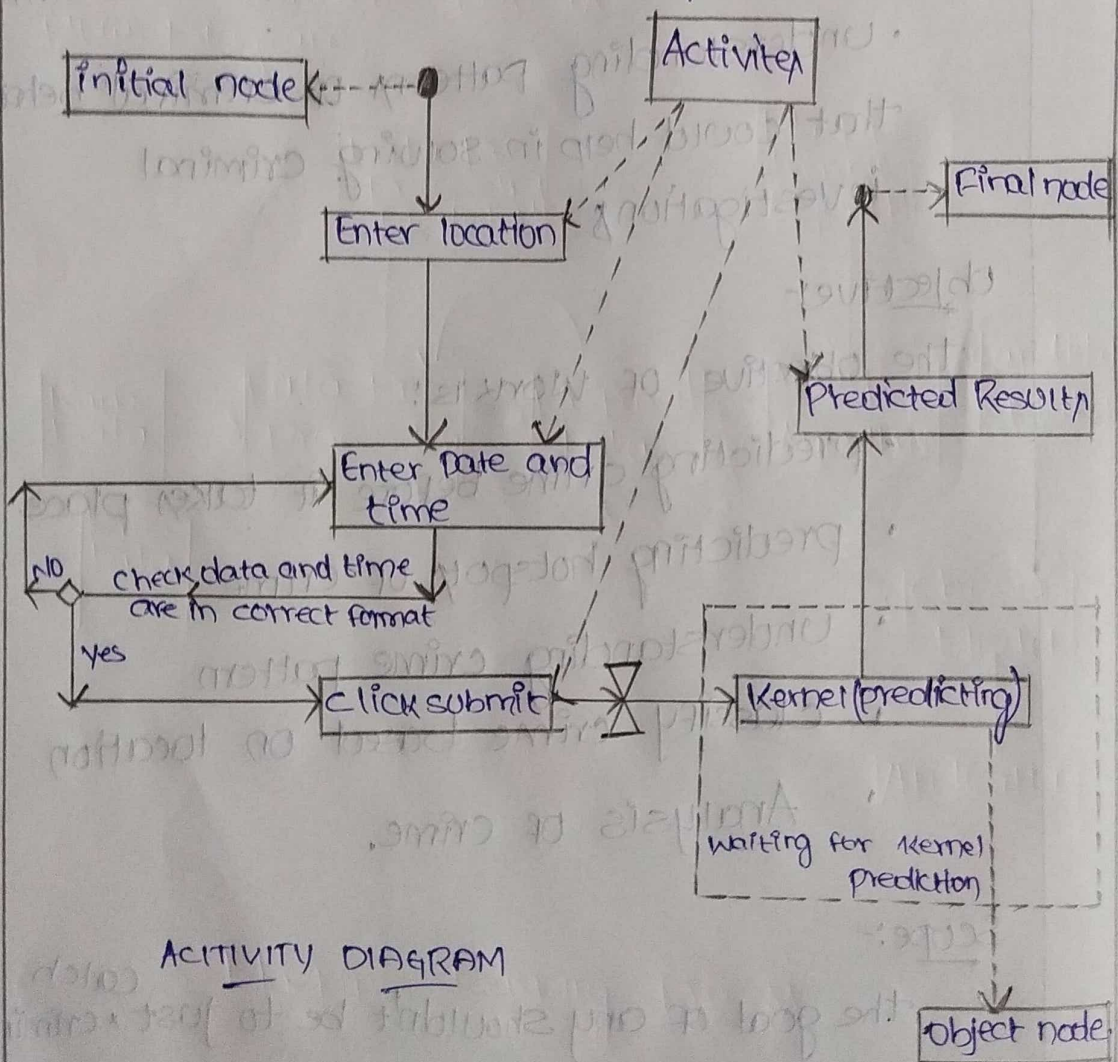 Activites
initial node
Final node
Enter location
Predicted Results
Enter Date and
time
No
check data and time
are in correct format
yes
click submit
Kernel (predicting)
waiting for Kernel
prediction
ACITIVITY DIAGRAM
Object node